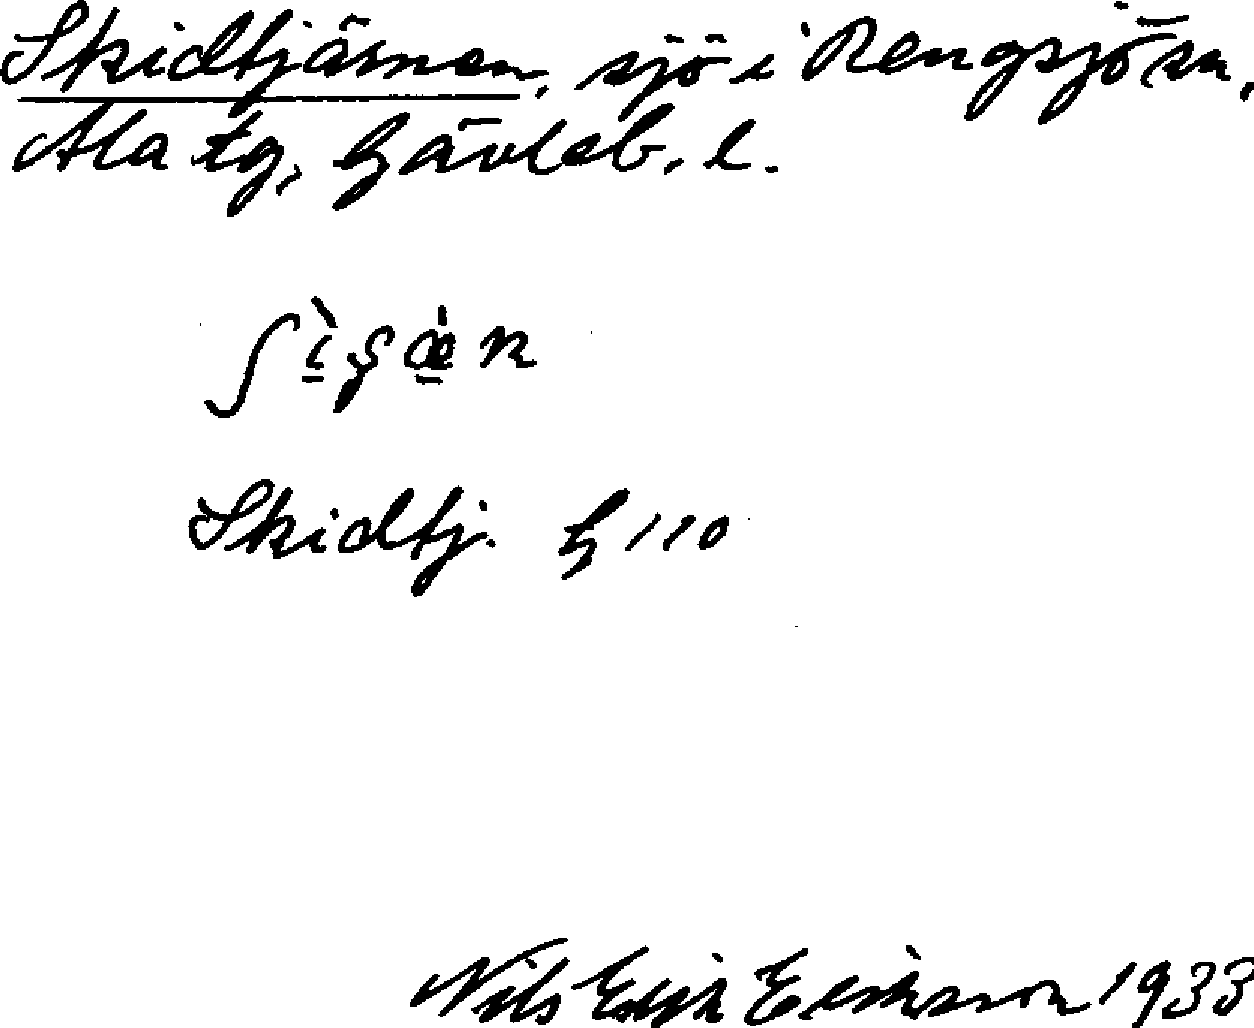 Skidtjärnen, sjö i Rengsjö sn,
Ala tg, Gävleb. l.
Skidtj. G 110
Nils Erik Eriksson 1933